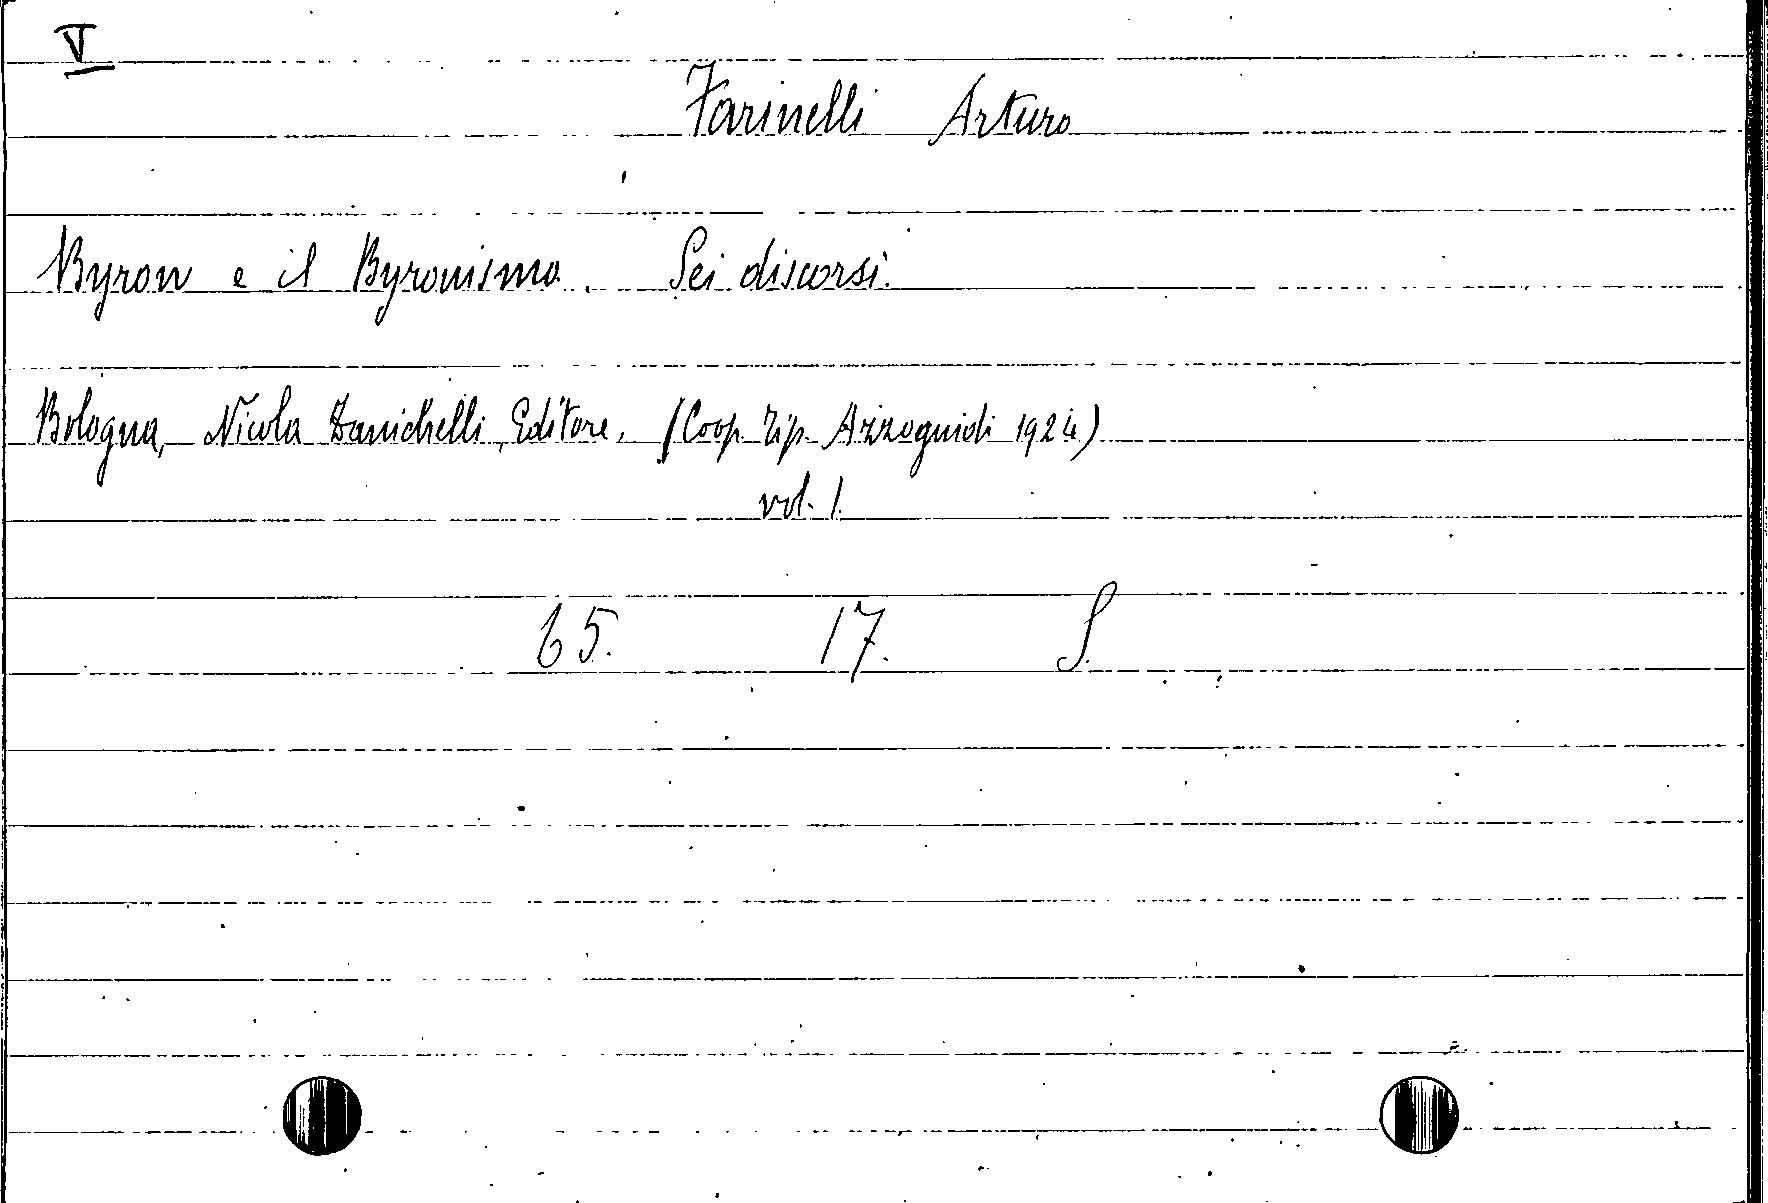 V
Farinelli Arturo
Byron e il Byronismo. Sei discorsi.
Bologna, Nicola Zanichelli, Editore, (Coop. Tip. Azzoguidi 1924)
vol. 1.
65. 17. S.